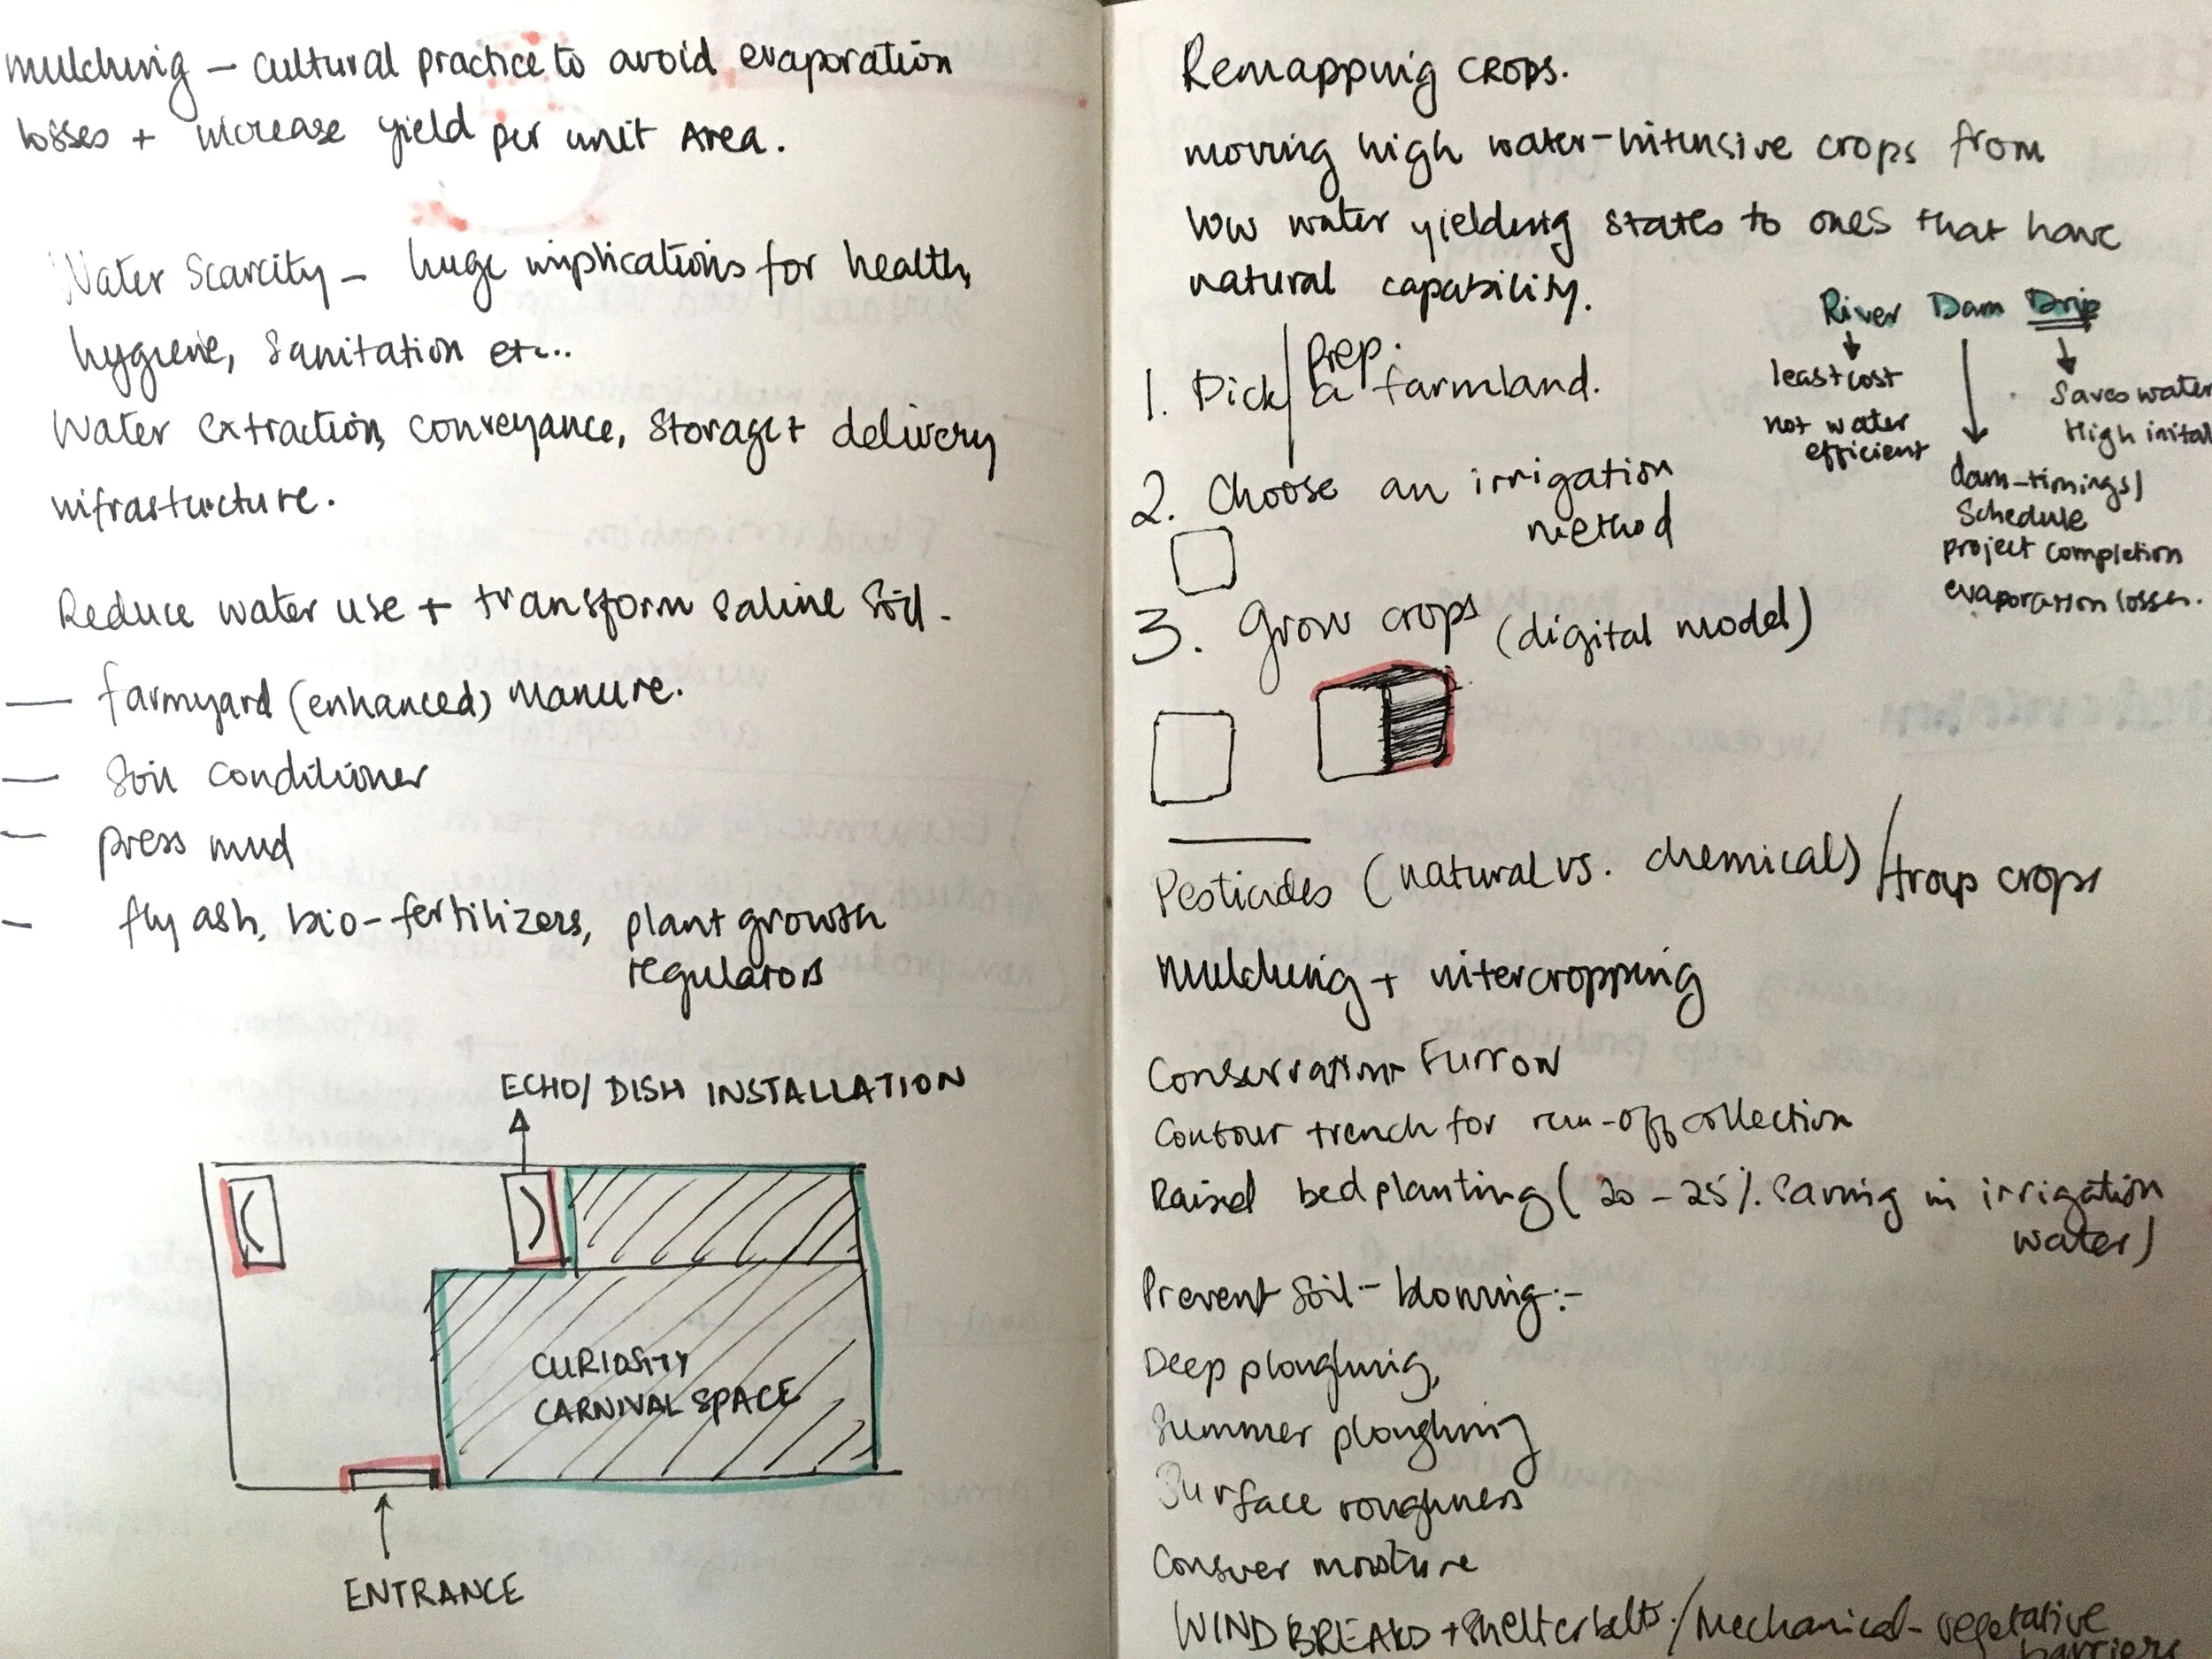 mulching – cultural practice to avoid evaporation
losses + increase yield per unit Area.
Water Scarcity – huge implications for health,
hygiene, Sanitation etc..
Water extraction, conveyance, storage + delivery
infrastucture.
Reduce water use + transform saline soil.
— farmyard (enhanced) manure.
— Soil conditioner
— press mud
– fly ash, bio-fertilizers, plant growth
regulators
ECHO/ DISH INSTALLATION
CURIOSITY
CARNIVAL SPACE
ENTRANCE
Remapping CROPS.
moving high water-intensive crops from
low water yielding states to ones that have
natural capability.
1. Pick/Prep. a farmland.
2. Choose an irrigation
method
3. Grow crops (digital model)
River Dam Drip
least cost
not water
efficient
dam-timings/
Schedule
project completion
evaporation losses.
Saves water
High inital
Pesticides (natural vs. chemical) / trap crops
mulching + intercropping
Conservation Furrow
Contour trench for run-off collection
Raised bed planting (20-25% saving in irrigation
water)
Prevent Soil-blowing:-
Deep ploughing,
Summer ploughing
Surface roughness
Conserver moisture
WIND BREAKS + Shelterbelts / Mechanical-vegetative
barriers